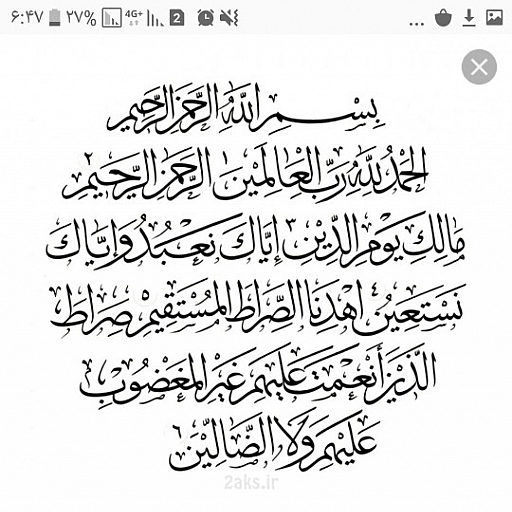 ۶:۴۷ ۲۷% 4G+ 2 ...
بِسْمِ اللَّهِ الرَّحْمَنِ الرَّحِيمِ
الْحَمْدُ لِلَّهِ رَبِّ الْعَالَمِينَ ١ الرَّحْمَنِ الرَّحِيمِ ٢
مَالِكِ يَوْمِ الدِّينِ ٣ إِيَّاكَ نَعْبُدُ وَإِيَّاكَ
نَسْتَعِينُ ٤ اهْدِنَا الصِّرَاطَ الْمُسْتَقِيمَ ٥ صِرَاطَ
الَّذِينَ أَنْعَمْتَ عَلَيْهِمْ غَيْرِ الْمَغْضُوبِ
عَلَيْهِمْ وَلَا الضَّالِّينَ ٦
2aks.ir